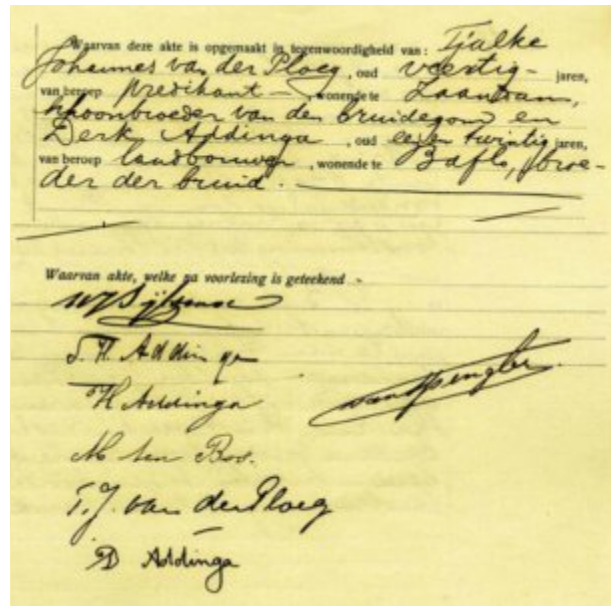 Waarvan deze akte is opgemaakt in tegenwoordigheid van: Tjalke
Johannes van der Ploeg, oud veertig jaren,
van beroep predikant, wonende te Zaandam,
schoonbroeder van den bruidegom en
Derk Addinga, oud een en twintig jaren,
van beroep landbouwer, wonende te Baflo, broe-
der der bruid.
Waarvan akte, welke na voorlezing is geteekend
T. H. Addinga
H Addinga
van Spengler
M ten Bos.
T. J. van der Ploeg
D Addinga